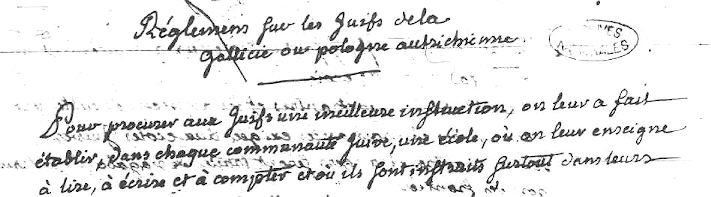 Réglemens sur les Juifs de la
Gallicie ou pologne autrichienne
ARCHIVES
NATIONALES
Pour procurer aux Juifs une meilleure instruction, on leur a fait
établir, dans chaque communauté Juive, une école, où on leur enseigne
à lire, à écrire et à compter et où ils sont instruits surtout dans leurs